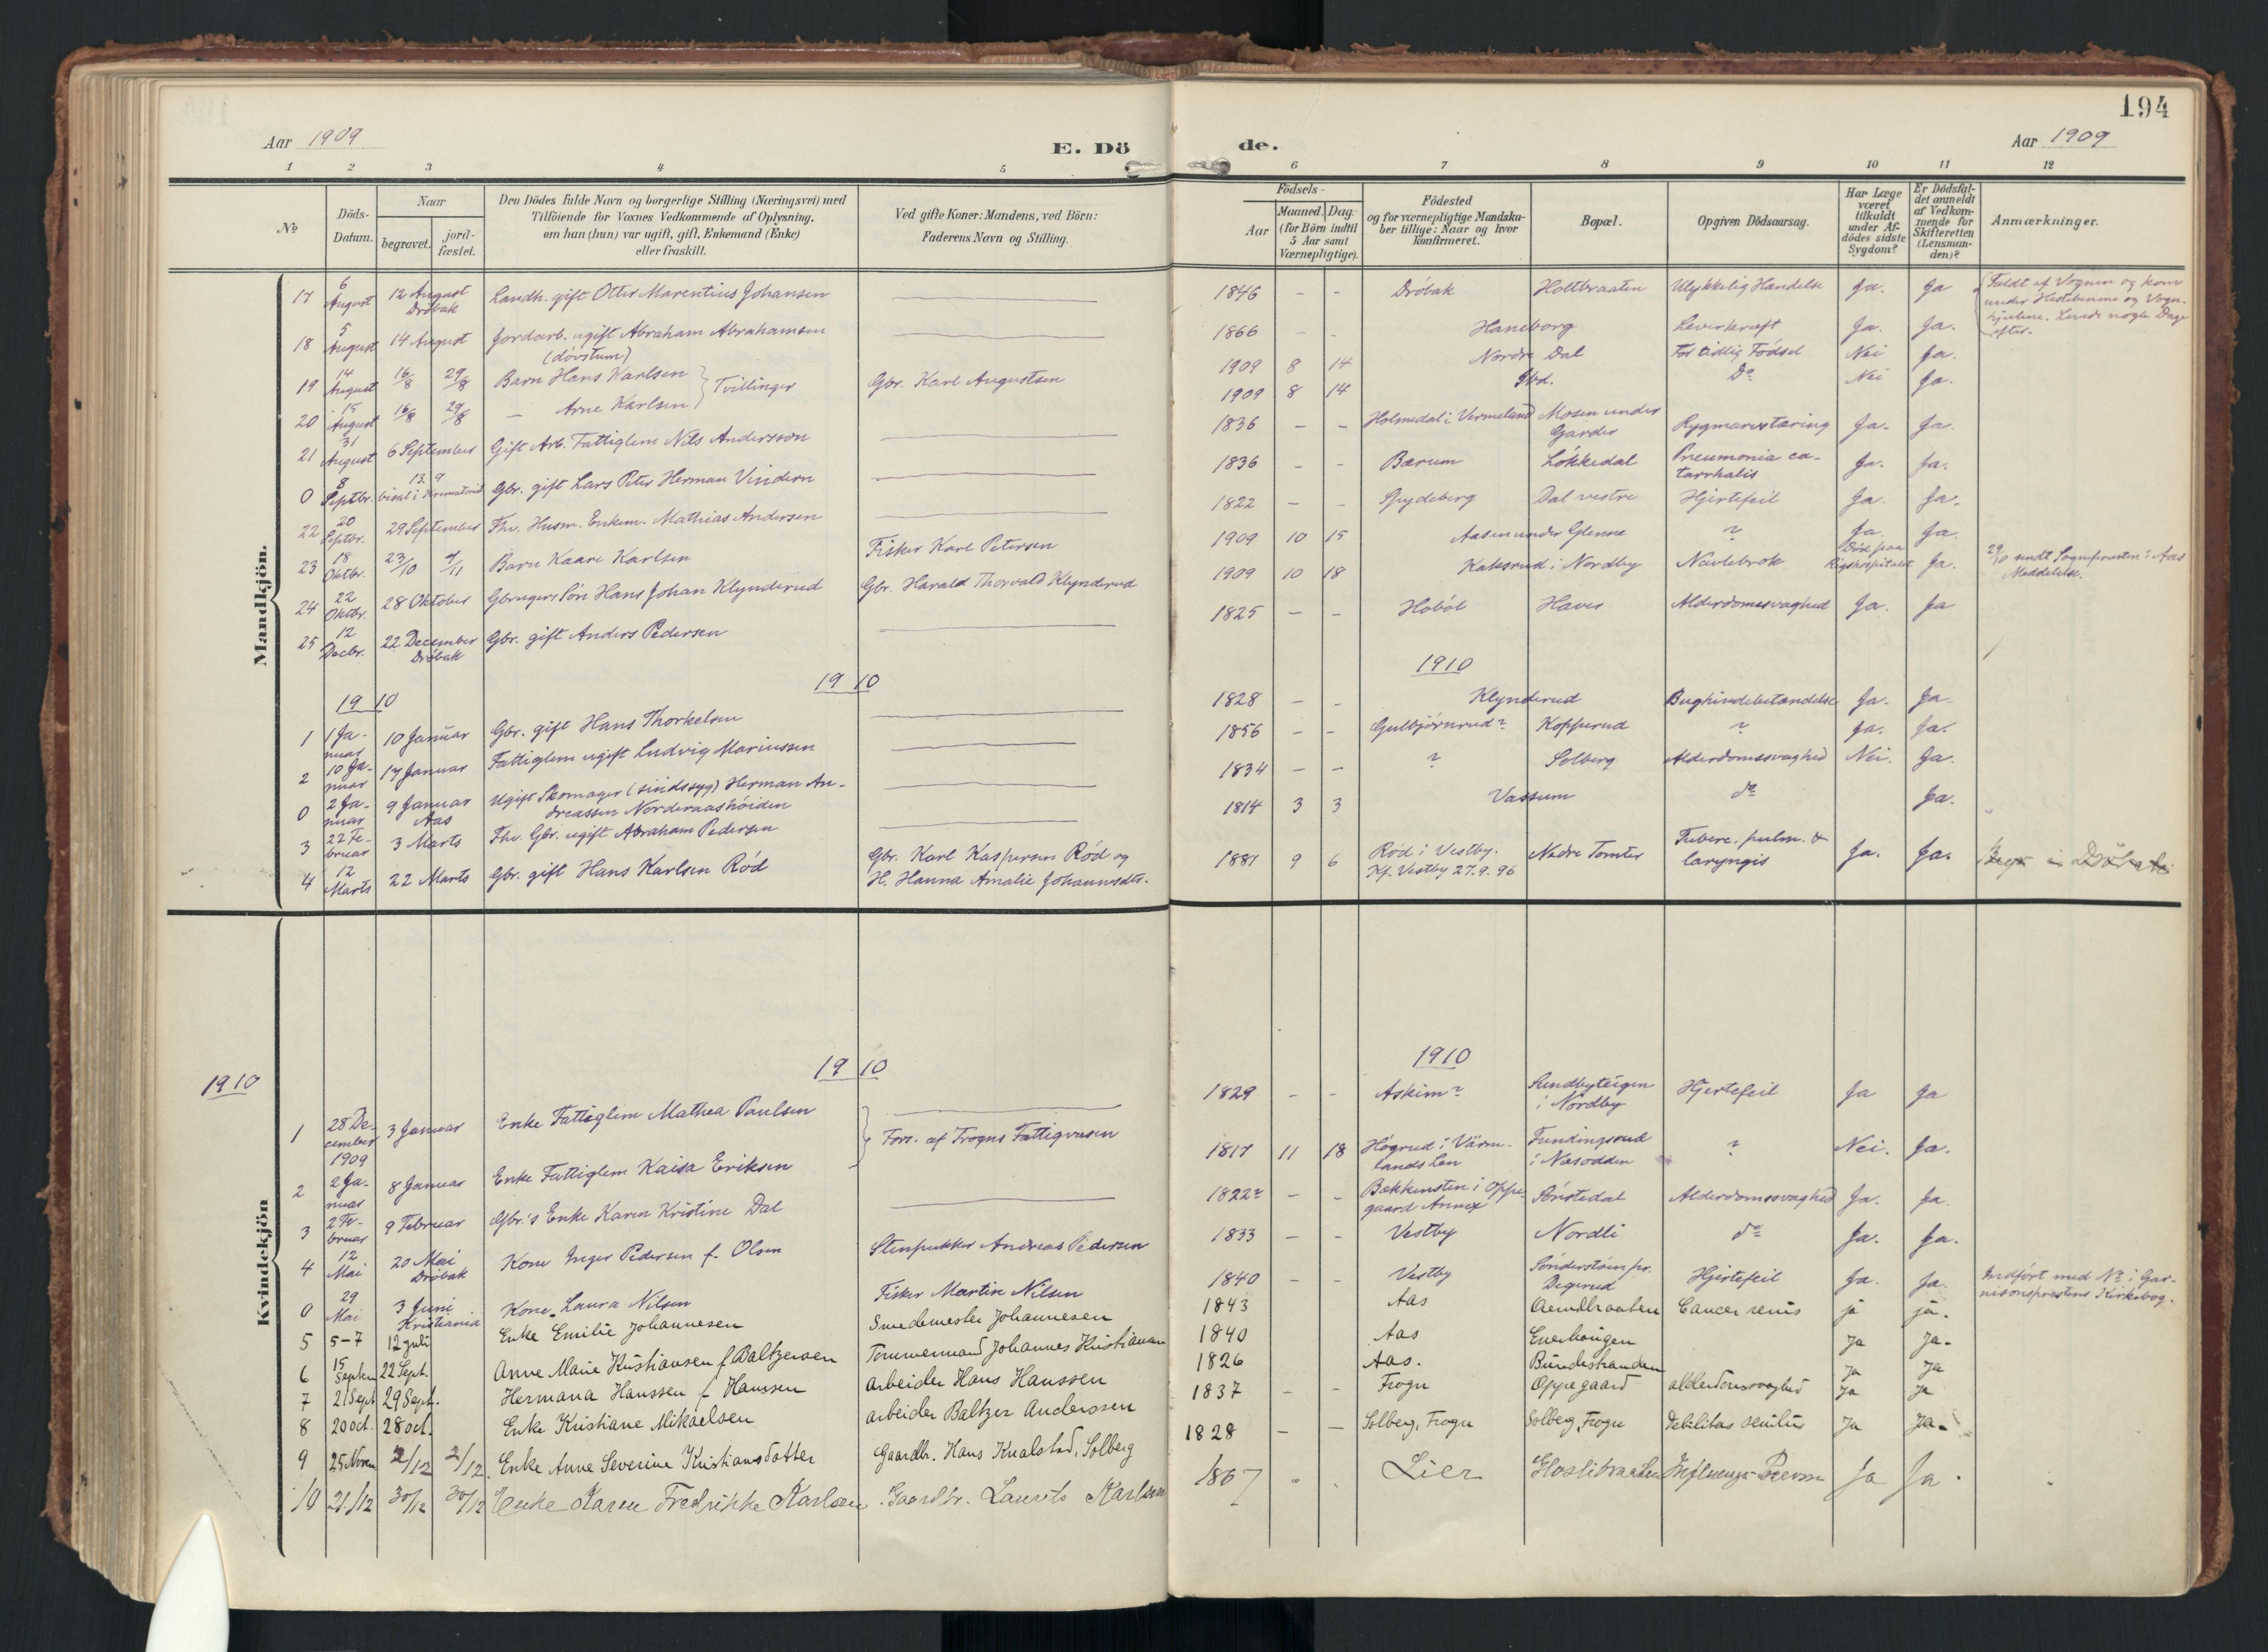 194
Aar 1909
E. Dö
de.
Aar 1909
1 2 3 4 5 6 7 8 9 10 11 12
№
Döds-Datum.
Naar
begravet.
jord-fæstet.
Den Dödes fulde Navn og borgerlige Stilling (Næringsvei) med
Tilföiende for Voxnes Vedkommende af Oplysning,
om han (hun) var ugift, gift, Enkemand (Enke)
eller fraskilt.
Ved gifte Koner: Mandens, ved Börn:
Faderens Navn og Stilling.
Födsels-
Aar
Maaned. Dag.
(for Börn indtil
5 Aar samt
Værnepligtige).
Födested
og for værnepligtige Mandska-
ber tillige: Naar og hvor
konfirmeret.
Bopæl.
Opgiven Dödsaarsag.
Har Læge
været
tilkaldt
under Af-
dödes sidste
Sygdom?
Er Dödsfal-
det anmeldt
af Vedkom-
mende for
Skifteretten
(Lensman-
den)?
Anmærkninger.
Mandkjön.
17 6 August 12 August Dröbak Landh. gift Otter Marentius Johansen — 1846 - - Dröbak Holtbraaten Ulykkelig Hændelse Ja. Ja Faldt af Vognen og kom
under Hestebenene og Vogn-
hjulene. Levede nogle Dage
efter.
18 5 August 14 August Jordarb. ugift Abraham Abrahamsen (dövstum) — 1866 - - Haneborg Leverkræft Ja. Ja.
19 14 August 16/8 29/8 Barn Hans Karlsen } Tvillinger Gbr. Karl Augustsen 1909 8 14 Nordre Dal For tidlig Födsel Nei Ja.
20 15 August 16/8 29/8 — Arne Karlsen 1909 8 14 Ibd. Do Nei Ja.
21 31 August 6 September Gift Arb. Fattiglem Nils Andersson — 1836 - - Holmedal i Vermeland Mosen under Garder Rygmarvstæring Ja. Ja.
0 8 Septbr. 13.9 i Krematoriet Gbr. gift Lars Peter Herman Vindern — 1836 - - Bærum Lökkedal Pneumonia ca-
tarrhalis Ja. Ja.
22 20 Septbr. 29 September Fhv. Husm. Enkem. Mathias Andersen — 1822 - - Spydeberg Dal vestre Hjertefeil Ja. Ja.
23 18 Oktbr. 23/10 7/11 Barn Kaare Karlsen Fisker Karl Petersen 1909 10 15 Aasen under Glenne ? Ja. Ja.
24 22 Oktbr. 28 Oktober Gbrugers Sön Hans Johan Klynderud Gbr. Harald Thorvald Klynderud 1909 10 18 Katesrud i Nordby Navlebrok Död paa Rigshospitalet Ja. 29/10 sendt Sognepresten i Aas
Meddelelse.
25 12 Decbr. 22 December Dröbak Gbr. gift Anders Pedersen — 1825 - - Hoböl Haver Alderdomssvaghed Ja. Ja
1910 1910 1910
1 1 Januar 10 Januar Gbr. gift Hans Thorkelsen — 1828 - - Klynderud Bughindebetændelse Ja. Ja.
2 10 Januar 17 Januar Fattiglem ugift Ludvig Mariussen — 1856 - - Gulbjörnrud? Kopperud ? Ja. Ja.
0 2 Januar 9 Januar Aas Ugift Skomager (sindssyg) Herman An-
dreassen Norderaashöiden — 1834 - - ? Solberg Alderdomssvaghed Nei. Ja.
3 22 Februar 3 Marts Fhv. Gbr. ugift Abraham Pedersen — 1814 3 3 Vassum do Ja.
4 12 Marts 22 Marts Gbr. gift Hans Karlsen Röd Gbr. Karl Kaspersen Röd og
H. Hanna Amalie Johannsdtr. 1881 9 6 Röd i Vestby.
Kf. Vestby 27.9.96 Nedre Tomter Tuberc. pulm. &
laryngis Ja. Ja.
Kvindekjön
1910 1910 1910
1 28 December 1909 3 Januar Enke Fattiglem Mathea Paulsen } Fors. af Frogns Fattigvæsen 1829 - - Askim? Sundbyteigen
i Nordby Hjertefeil Ja Ja
2 2 Januar 8 Januar Enke Fattiglem Kaisa Eriksen 1817 11 18 Högrud i Värm-
lands Len Fundingsrud
i Næsodden ? Nei. Ja.
3 2 Februar 9 Februar Gbr.'s Enke Karen Kristine Dal — 1822? - - Bækkensten i Oppe
gaard Annex Sönstedal Alderdomssvaghed Ja. Ja.
4 12 Mai 20 Mai Dröbak Kone Inger Pedersen f. Olsen Stenpukker Andreas Pedersen 1833 - - Vestby Nordli do Ja. Ja.
0 29 Mai 3 Juni Kristiania Kone Laura Nilsen Fisker Martin Nilsen 1840 - - Vestby Sönderstöen pr.
Degerud Hjertefeil Ja. Ja. Indfört med No i Gar-
nisonsprestens Kirkebog.
5 5-7 12 juli Enke Emilie Johannesen Smedemester Johannesen 1843 Aas Cancer renis ja ja.
6 15 Septem 22 Sept. Anne Marie Kristiansen f Baltzersen Tömmermand Johannes Kristiansen 1840 Aas Enerhaugen Ja Ja.
7 21 Sept 29 Sept. Hermana Hanssen f Hanssen arbeider Hans Hanssen 1826 Aas. Bundestranden Ja Ja
8 20 oct. 28 oct. Enke Kristiane Mikaelsen arbeider Baltzer Anderssen 1837 - - Frogn Oppegaard alderdomssvaghed Ja Ja
9 25 Novem 2/12 2/12 Enke Anne Severine Kristiansdatter Gaardbr. Hans Knalstad, Solberg 1828 - - Solberg, Frogn Solberg, Frogn Debilitas senilis Ja Ja.
10 21/12 30/12 30/12 Enke Karen Fredrikke Karlsen Gaardbr. Laurits Karlsen 1867 Lier Ja Ja.